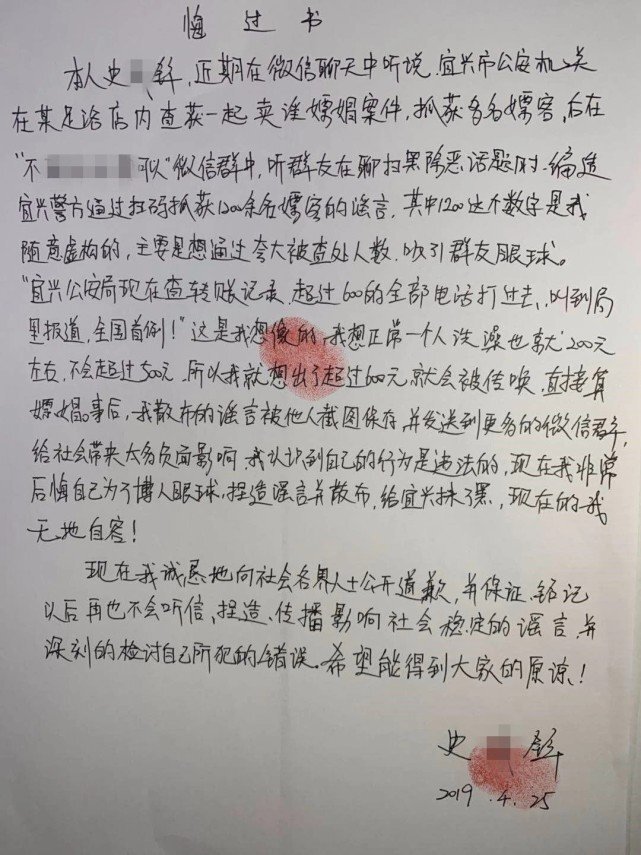 悔过书
本人史 锋,近期在微信聊天中听说,宜兴市公安机关
在某足浴店内查获一起卖淫嫖娼案件,抓获多名嫖客,后在
"不 可以"微信群中,听群友在聊扫黑除恶话题时,编造
宜兴警方通过扫码抓获1200余名嫖客的谣言,其中1200这个数字是我
随意虚构的,主要是想通过夸大被查处人数,吸引群友眼球。
"宜兴公安局现在查转账记录,超过600的全部电话打过去、叫到局
里报道,全国首例!"这是我想像的,我想正常一个人洗澡也就200元
左右,不会超过500元,所以我就想出了超过600元就会被传唤,直接算
嫖娼。事后,我散布的谣言被他人截图保存,并发送到更多的微信群,
给社会带来太多负面影响,我认识到自己的行为是违法的,现在我非常
后悔自己为了博人眼球,捏造谣言并散布,给宜兴抹了黑,现在的我
无地自容!
现在我诚恳地向社会各界人士公开道歉,并保证、铭记
以后再也不会听信、捏造、传播影响社会稳定的谣言,并
深刻的检讨自己所犯的错误。希望能得到大家的原谅!
史 锋
2019.4.25